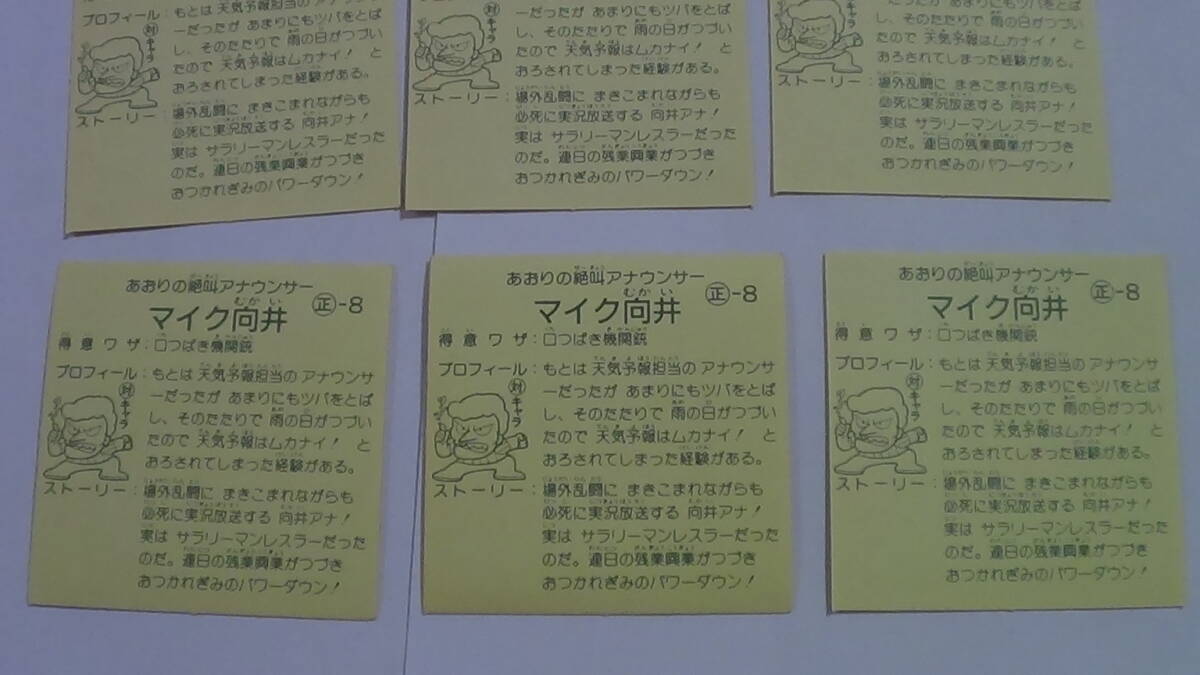 プロフィール：もとは 天気予報担当の アナウンサ
ーだったが あまりにもツバをとば
し、そのたたりで 雨の日がつづい
たので 天気予報はムカナイ！ と
おろされてしまった経験がある。
対キャラ
ストーリー：場外乱闘に まきこまれながらも
必死に実況放送する 向井アナ！
実は サラリーマンレスラーだった
のだ。連日の残業興業がつづき
おつかれぎみのパワーダウン！
ーだったが あまりにもツバをとば
し、そのたたりで 雨の日がつづい
たので 天気予報はムカナイ！ と
おろされてしまった経験がある。
対キャラ
ストーリー：場外乱闘に まきこまれながらも
必死に実況放送する 向井アナ！
実は サラリーマンレスラーだった
のだ。連日の残業興業がつづき
おつかれぎみのパワーダウン！
ーだったが あまりにもツバをとば
し、そのたたりで 雨の日がつづい
たので 天気予報はムカナイ！ と
おろされてしまった経験がある。
対キャラ
ストーリー：場外乱闘に まきこまれながらも
必死に実況放送する 向井アナ！
実は サラリーマンレスラーだった
のだ。連日の残業興業がつづき
おつかれぎみのパワーダウン！
あおりの絶叫アナウンサー
マイク向井 正-8
得意ワザ：口つばき機関銃
プロフィール：もとは 天気予報担当の アナウンサ
ーだったが あまりにもツバをとば
し、そのたたりで 雨の日がつづい
たので 天気予報はムカナイ！ と
おろされてしまった経験がある。
対キャラ
ストーリー：場外乱闘に まきこまれながらも
必死に実況放送する 向井アナ！
実は サラリーマンレスラーだった
のだ。連日の残業興業がつづき
おつかれぎみのパワーダウン！
あおりの絶叫アナウンサー
マイク向井 正-8
得意ワザ：口つばき機関銃
プロフィール：もとは 天気予報担当の アナウンサ
ーだったが あまりにもツバをとば
し、そのたたりで 雨の日がつづい
たので 天気予報はムカナイ！ と
おろされてしまった経験がある。
対キャラ
ストーリー：場外乱闘に まきこまれながらも
必死に実況放送する 向井アナ！
実は サラリーマンレスラーだった
のだ。連日の残業興業がつづき
おつかれぎみのパワーダウン！
あおりの絶叫アナウンサー
マイク向井 正-8
得意ワザ：口つばき機関銃
プロフィール：もとは 天気予報担当の アナウンサ
ーだったが あまりにもツバをとば
し、そのたたりで 雨の日がつづい
たので 天気予報はムカナイ！ と
おろされてしまった経験がある。
対キャラ
ストーリー：場外乱闘に まきこまれながらも
必死に実況放送する 向井アナ！
実は サラリーマンレスラーだった
のだ。連日の残業興業がつづき
おつかれぎみのパワーダウン！